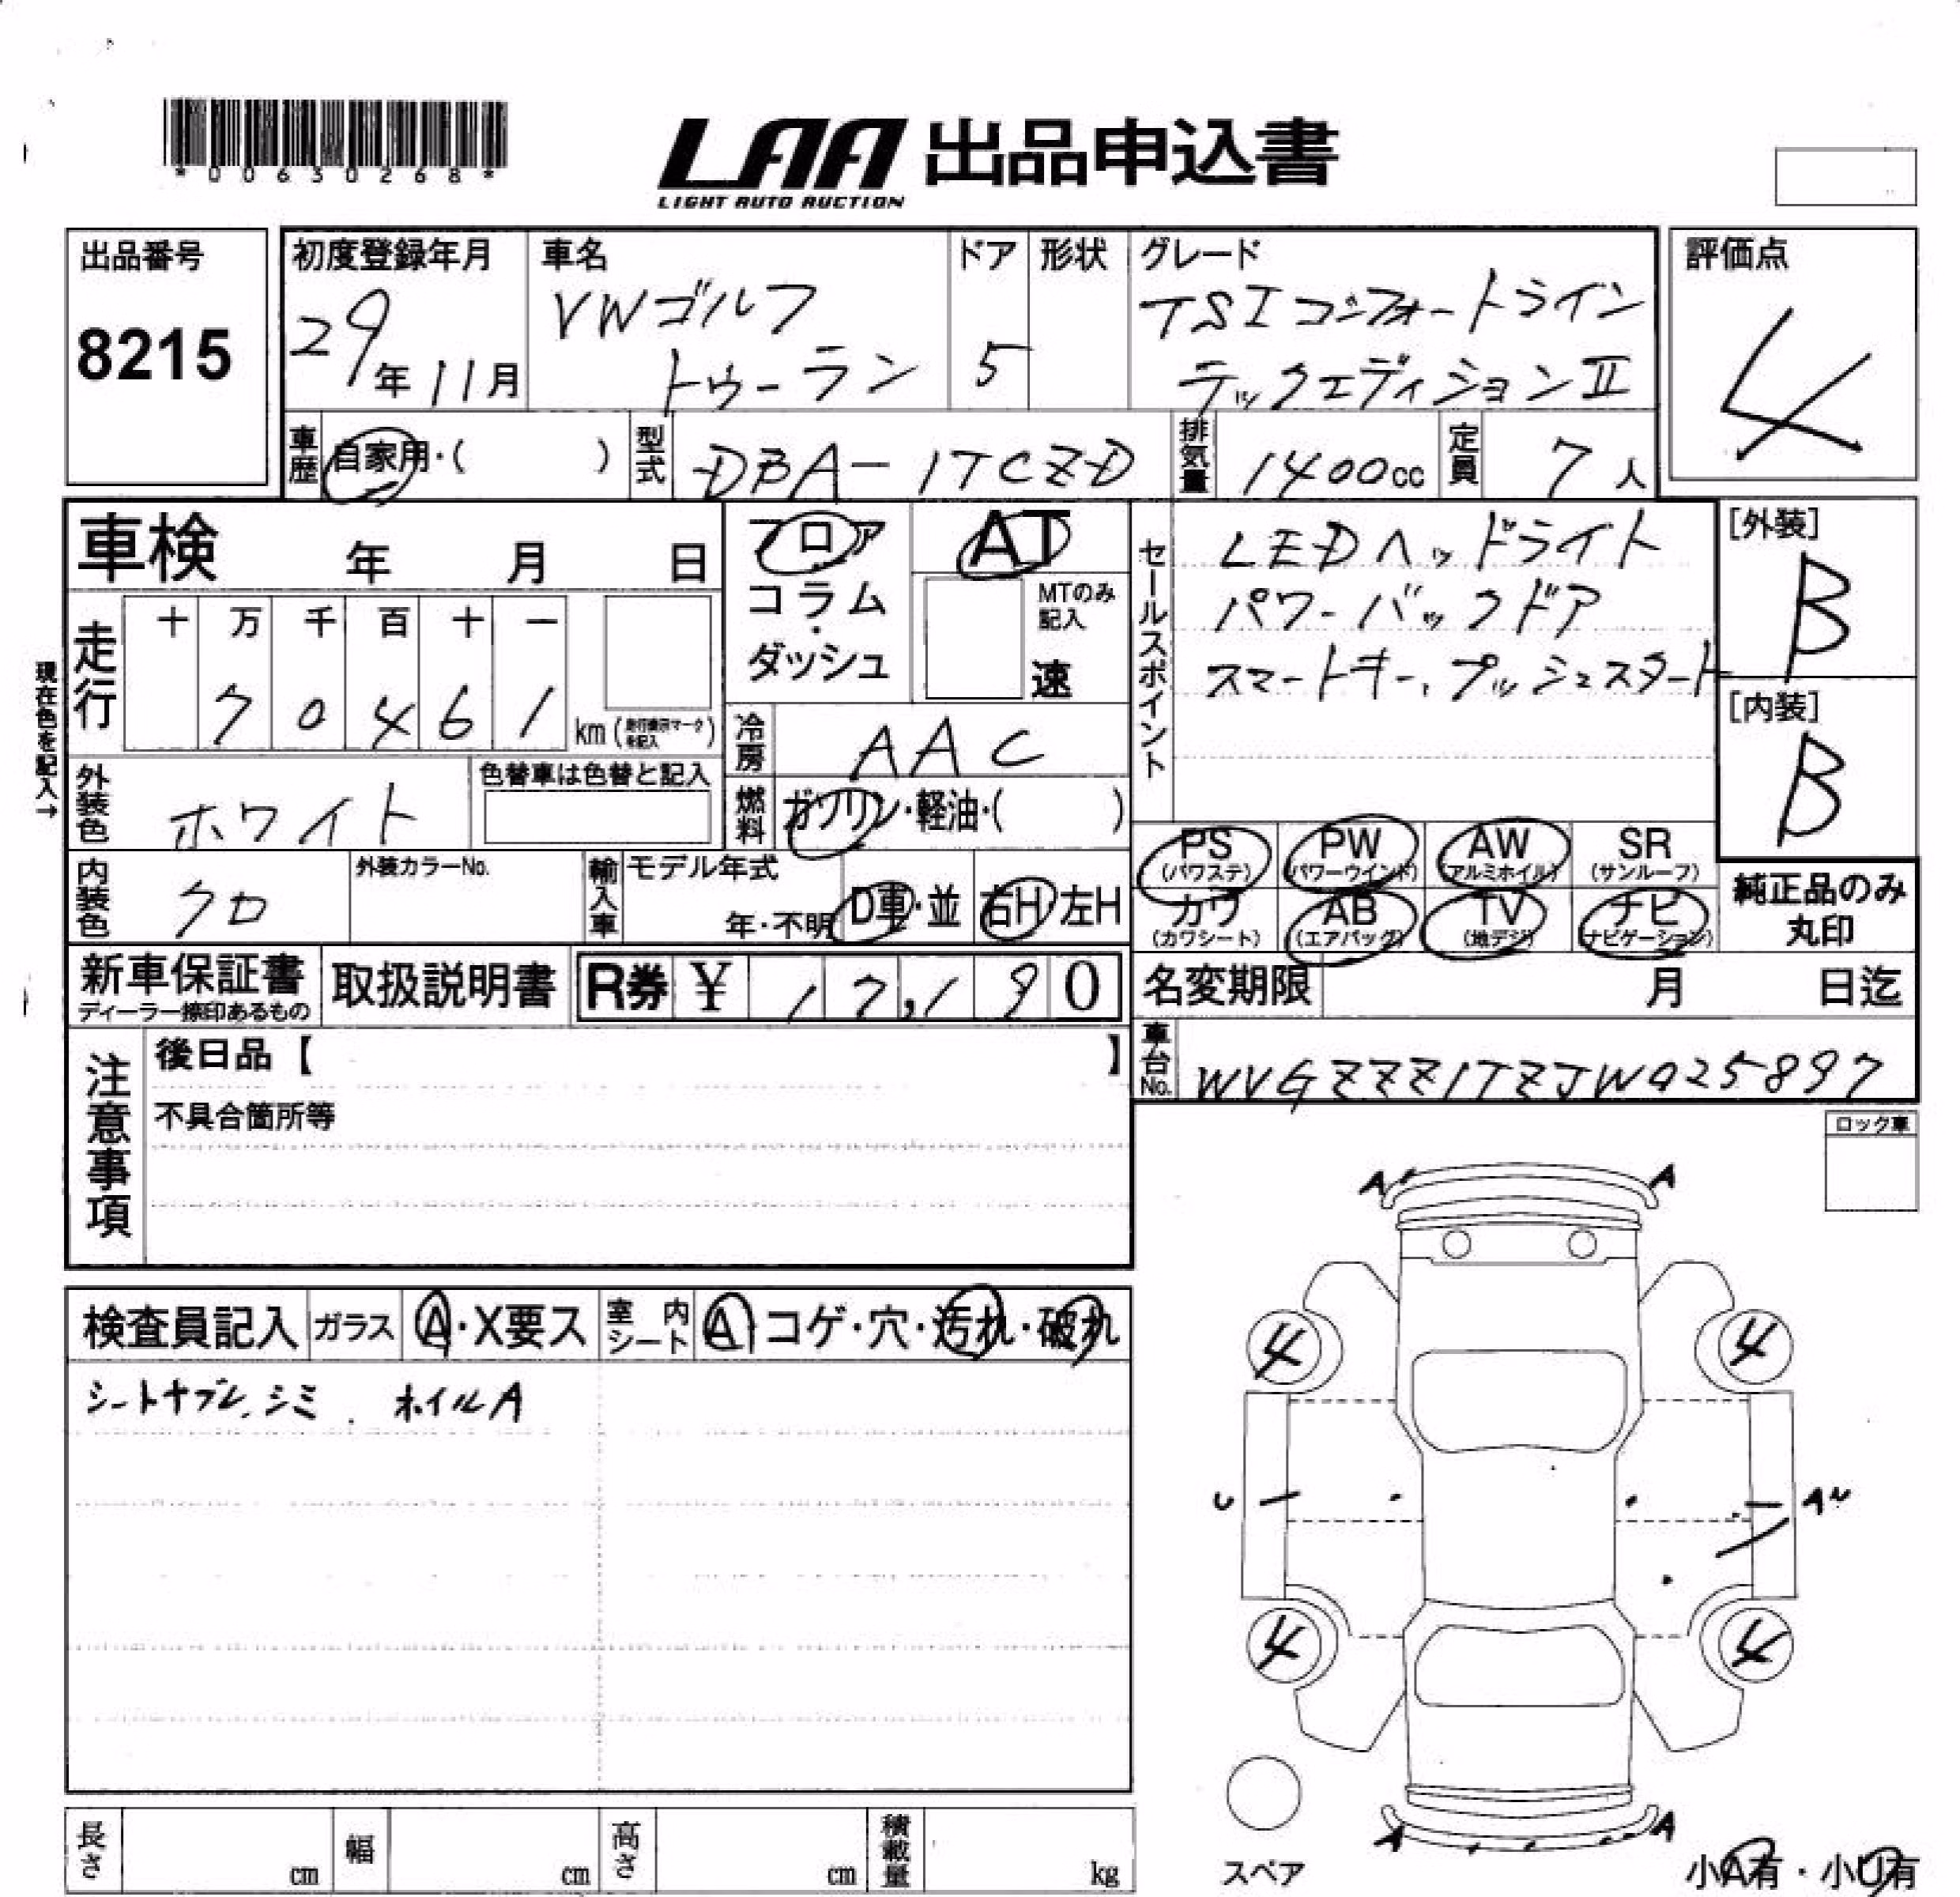 *00630268*
LAA 出品申込書
LIGHT AUTO AUCTION
出品番号
8215
初度登録年月
29年11月
車名
VWゴルフ
トゥーラン
ドア
5
形状
グレード
TSIコンフォートライン
テックエディションⅡ
評価点
4
車歴
自家用・( )
型式
DBA-1TCZD
排気量
1400cc
定員
7人
車検 年 月 日
フロア
コラム
・
ダッシュ
AT
MTのみ
記入
速
セールスポイント
LEDヘッドライト
パワーバックドア
スマートキー、プッシュスタート
[外装]
B
[内装]
B
現在色を記入→
走行
十 万 千 百 十 一
7 0 4 6 1
km (
)
冷房
AAC
外装色
ホワイト
色替車は色替と記入
燃料
ガソリン・軽油・( )
内装色
クロ
外装カラーNo.
輸入車
モデル年式
年・不明
D車・並
右H 左H
PS
(パワステ)
PW
(パワーウインド)
AW
(アルミホイル)
SR
(サンルーフ)
カワ
(カワシート)
AB
(エアバッグ)
TV
(地デジ)
ナビ
(ナビゲーション)
純正品のみ
丸印
新車保証書
ディーラー捺印あるもの
取扱説明書
R券 ¥ 17,190
名変期限 月 日迄
車台No.
WVGZZZ1TZJW025897
注意事項
後日品【 】
不具合箇所等
ロック車
検査員記入
ガラス
A・X要ス
室内
シート
A コゲ・穴・汚れ・破れ
シートヤブレ、シミ、ホイルA
A A
4 4
U AU
4 4
A A
スペア
小A有・小U有
長さ cm
幅 cm
高さ cm
積載量 kg